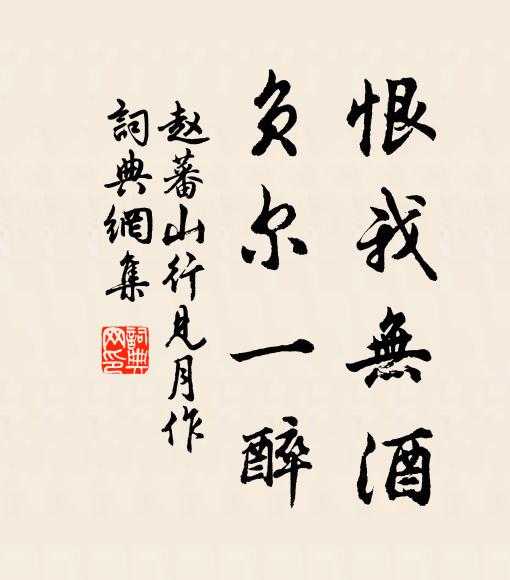 恨我無酒
负尔一醉
赵蕃山行见月作
詞典網集
詞典網印